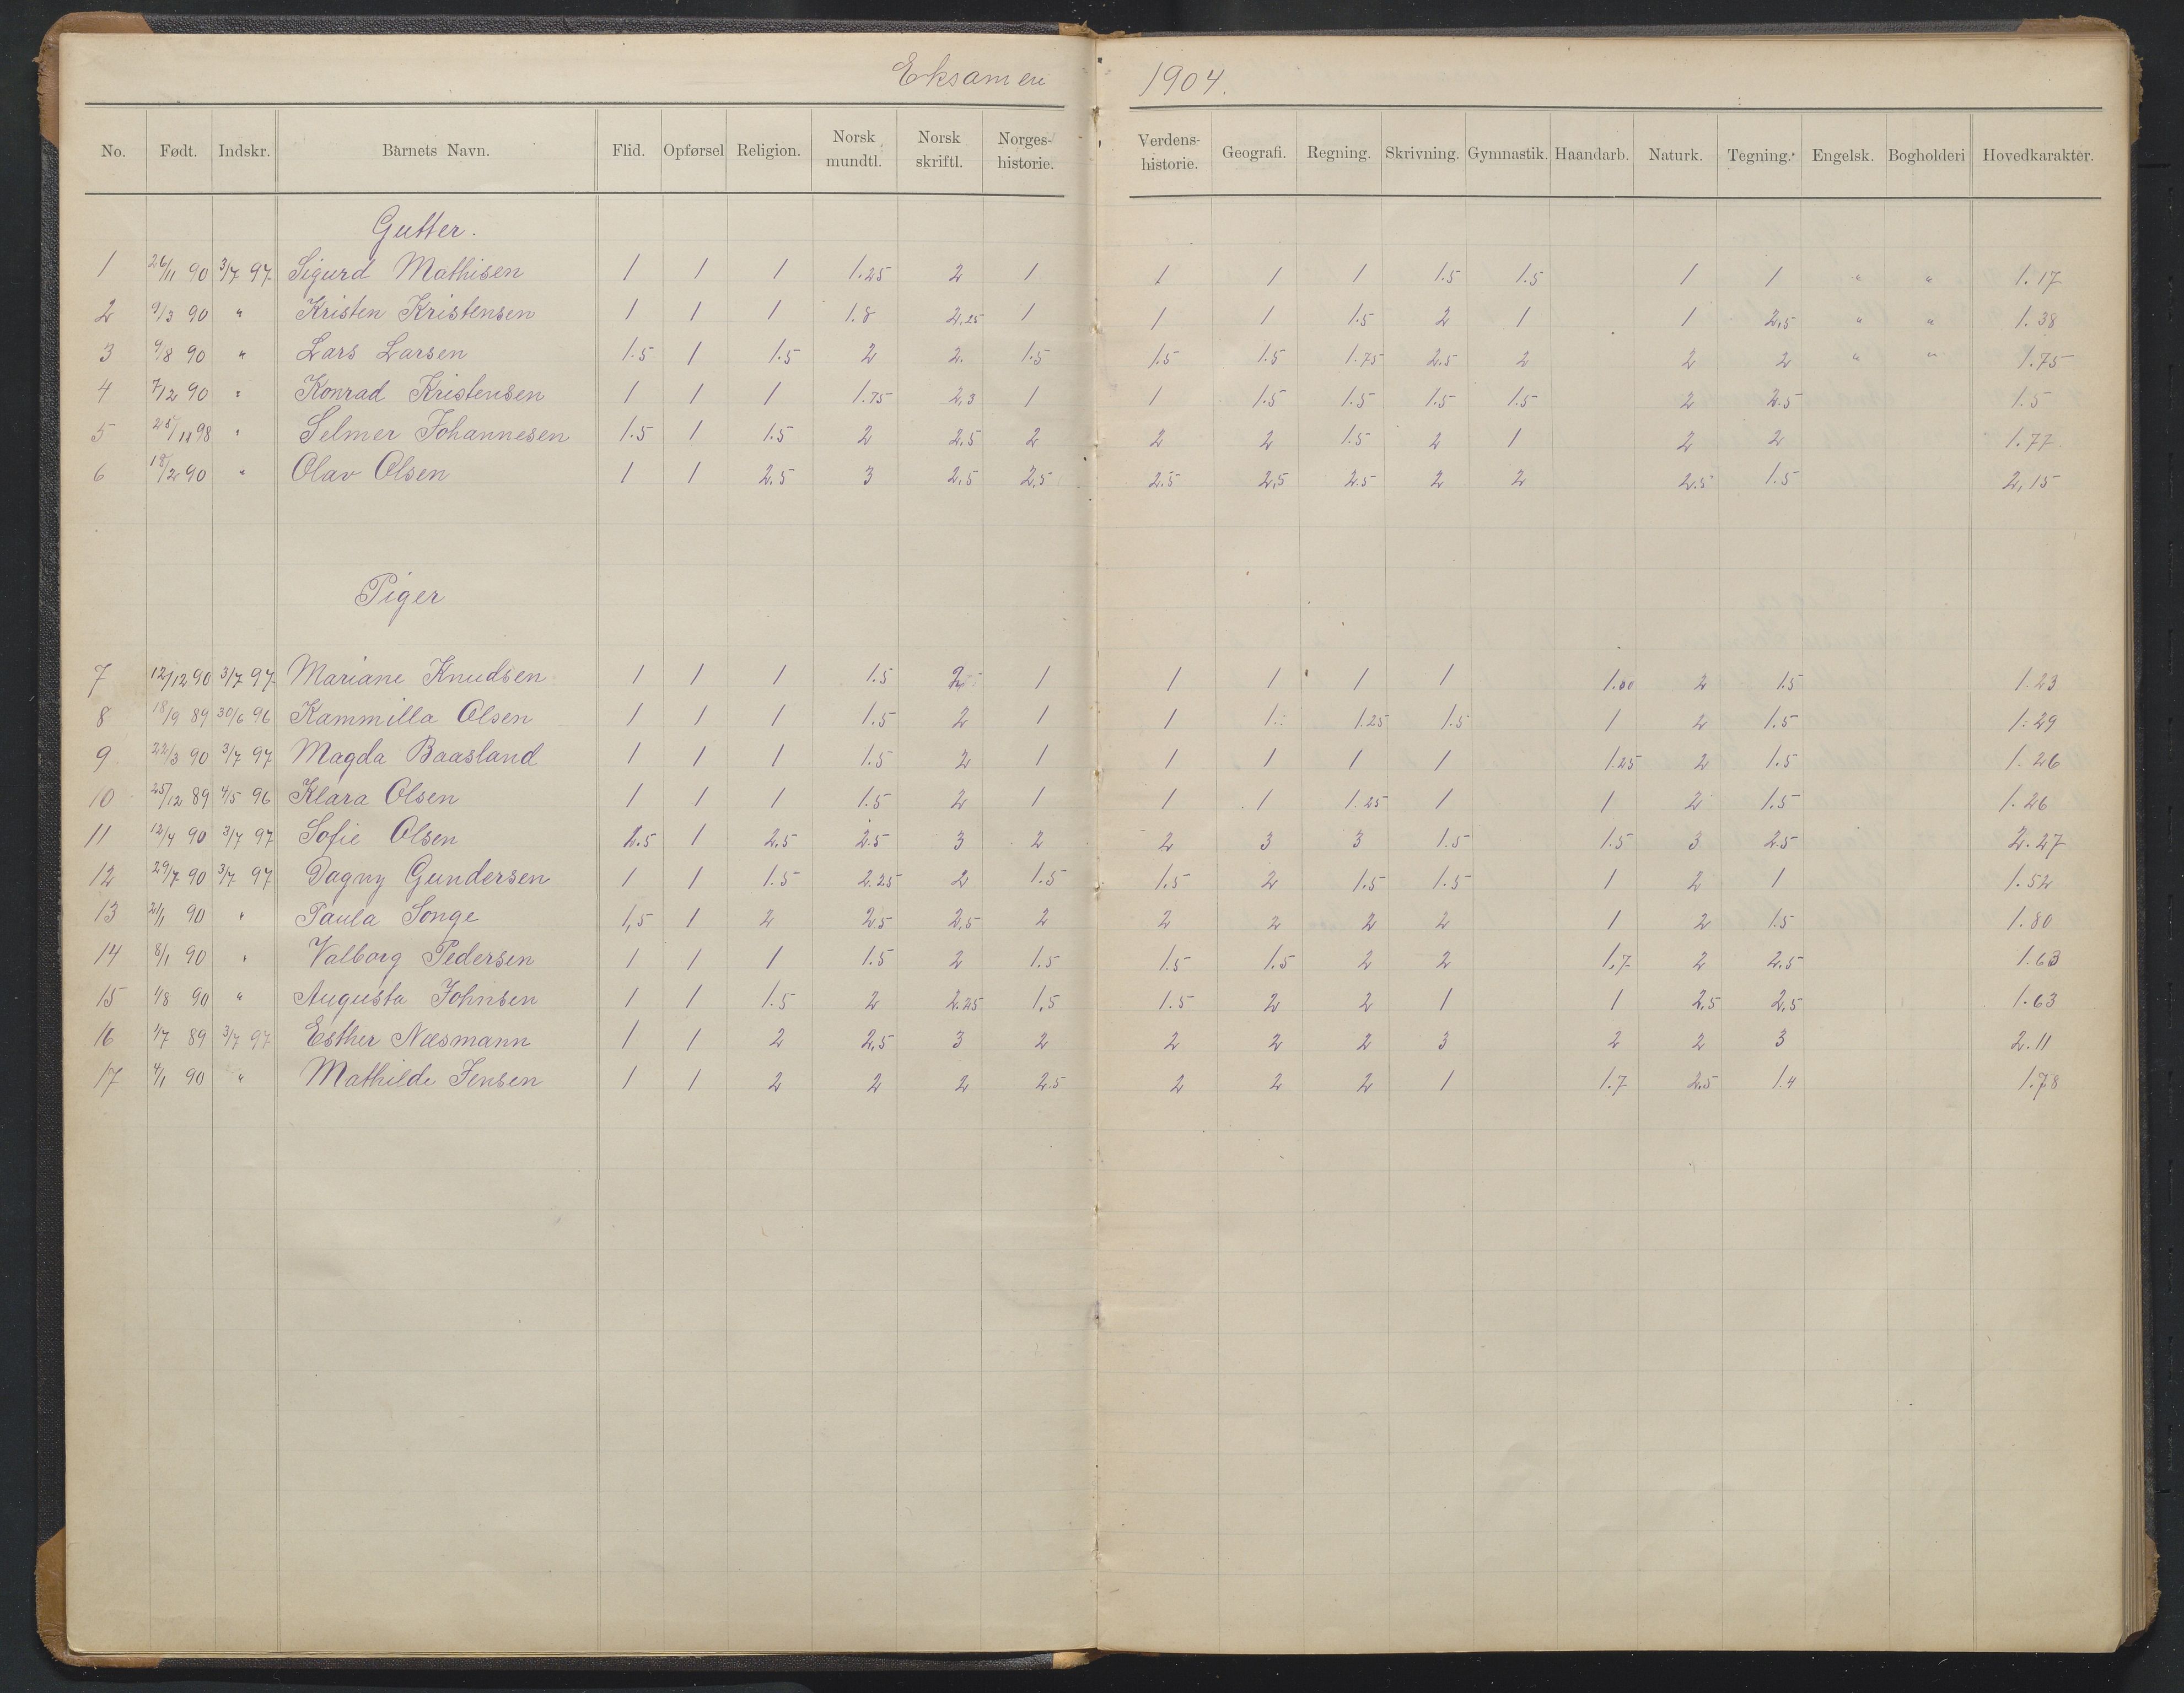 Eksamen 1904.
No. Født. Indskr. Barnets Navn. Flid. Opførsel Religion. Norsk mundtl. Norsk skriftl. Norges-historie. Verdens-historie. Geografi. Regning. Skrivning. Gymnastik. Haandarb. Naturk. Tegning. Engelsk. Bogholderi Hovedkarakter.
Gutter.
1 26/11 90 3/7 97 Sigurd Mathisen 1 1 1 1.25 2 1 1 1 1 1.5 1.5 1 1 " " 1.17
2 9/3 90 " Kristen Kristensen 1 1 1 1.8 2.25 1 1 1 1.5 2 1 1 2,5 " " 1.38
3 9/8 90 " Lars Larsen 1.5 1 1.5 2 2. 1.5 1.5 1.5 1.75 2.5 2 2 2 " " 1.75
4 7/12 90 " Konrad Kristensen 1 1 1 1.75 2,3 1 1 1.5 1.5 1.5 1.5 2 2.5 1.5
5 25/11 98 " Selmer Johannesen 1.5 1 1.5 2 2.5 2 2 2 1.5 2 1 2 2 1.77
6 18/2 90 " Olav Olsen 1 1 2.5 3 2,5 2,5 2.5 2,5 2.5 2 2 2.5 1.5 2,15
Piger
7 12/12 90 3/7 97 Mariane Knudsen 1 1 1 1.5 2 1 1 1 1 1 1.00 2 1.5 1.23
8 18/9 89 30/6 96 Kammilla Olsen 1 1 1 1.5 2 1 1 1 1.25 1.5 1 2 1.5 1.29
9 22/3 90 3/7 97 Magda Baasland 1 1 1 1.5 2 1 1 1 1 1 1.25 2 1.5 1.26
10 25/12 89 4/5 96 Klara Olsen 1 1 1 1.5 2 1 1 1 1.25 1 1 2 1.5 1.26
11 12/4 90 3/7 97 Sofie Olsen 2.5 1 2,5 2.5 3 2 2 3 3 1.5 1.5 3 2.5 2.27
12 29/7 90 3/7 97 Dagny Gundersen 1 1 1.5 2.25 2 1.5 1.5 2 1.5 1.5 1 2 1 1.52
13 2/1 90 " Paula Songe 1,5 1 2 2.5 2.5 2 2 2 2 2 1 2 1.5 1.80
14 8/1 90 " Valborg Pedersen 1 1 1 1.5 2 1.5 1.5 1.5 2 2 1,7 2 2.5 1.63
15 1/8 90 " Augusta Johnsen 1 1 1.5 2 2.25 1,5 1.5 2 2 1 1 2,5 2,5 1.63
16 1/7 89 3/7 97 Esther Næsmann 1 1 2 2,5 3 2 2 2 2 3 2 2 3 2.11
17 4/1 90 " Mathilde Jensen 1 1 2 2 2 2.5 2 2 2 1 1.7 2.5 1.4 1.78